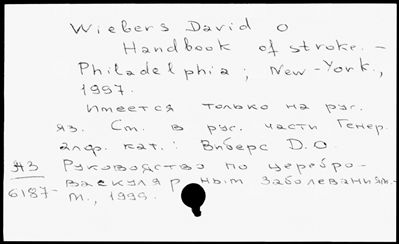 Wiebers David O
Handbook of stroke. –
Philadelphia; New-York.,
1997.
Имеется только на рус.
яз. См. в рус. части Генер.
алф. кат.: Виберс Д.О.
Я3 Руководство по церебро-
6187- васкулярным заболеваниям.-
М., 1999.